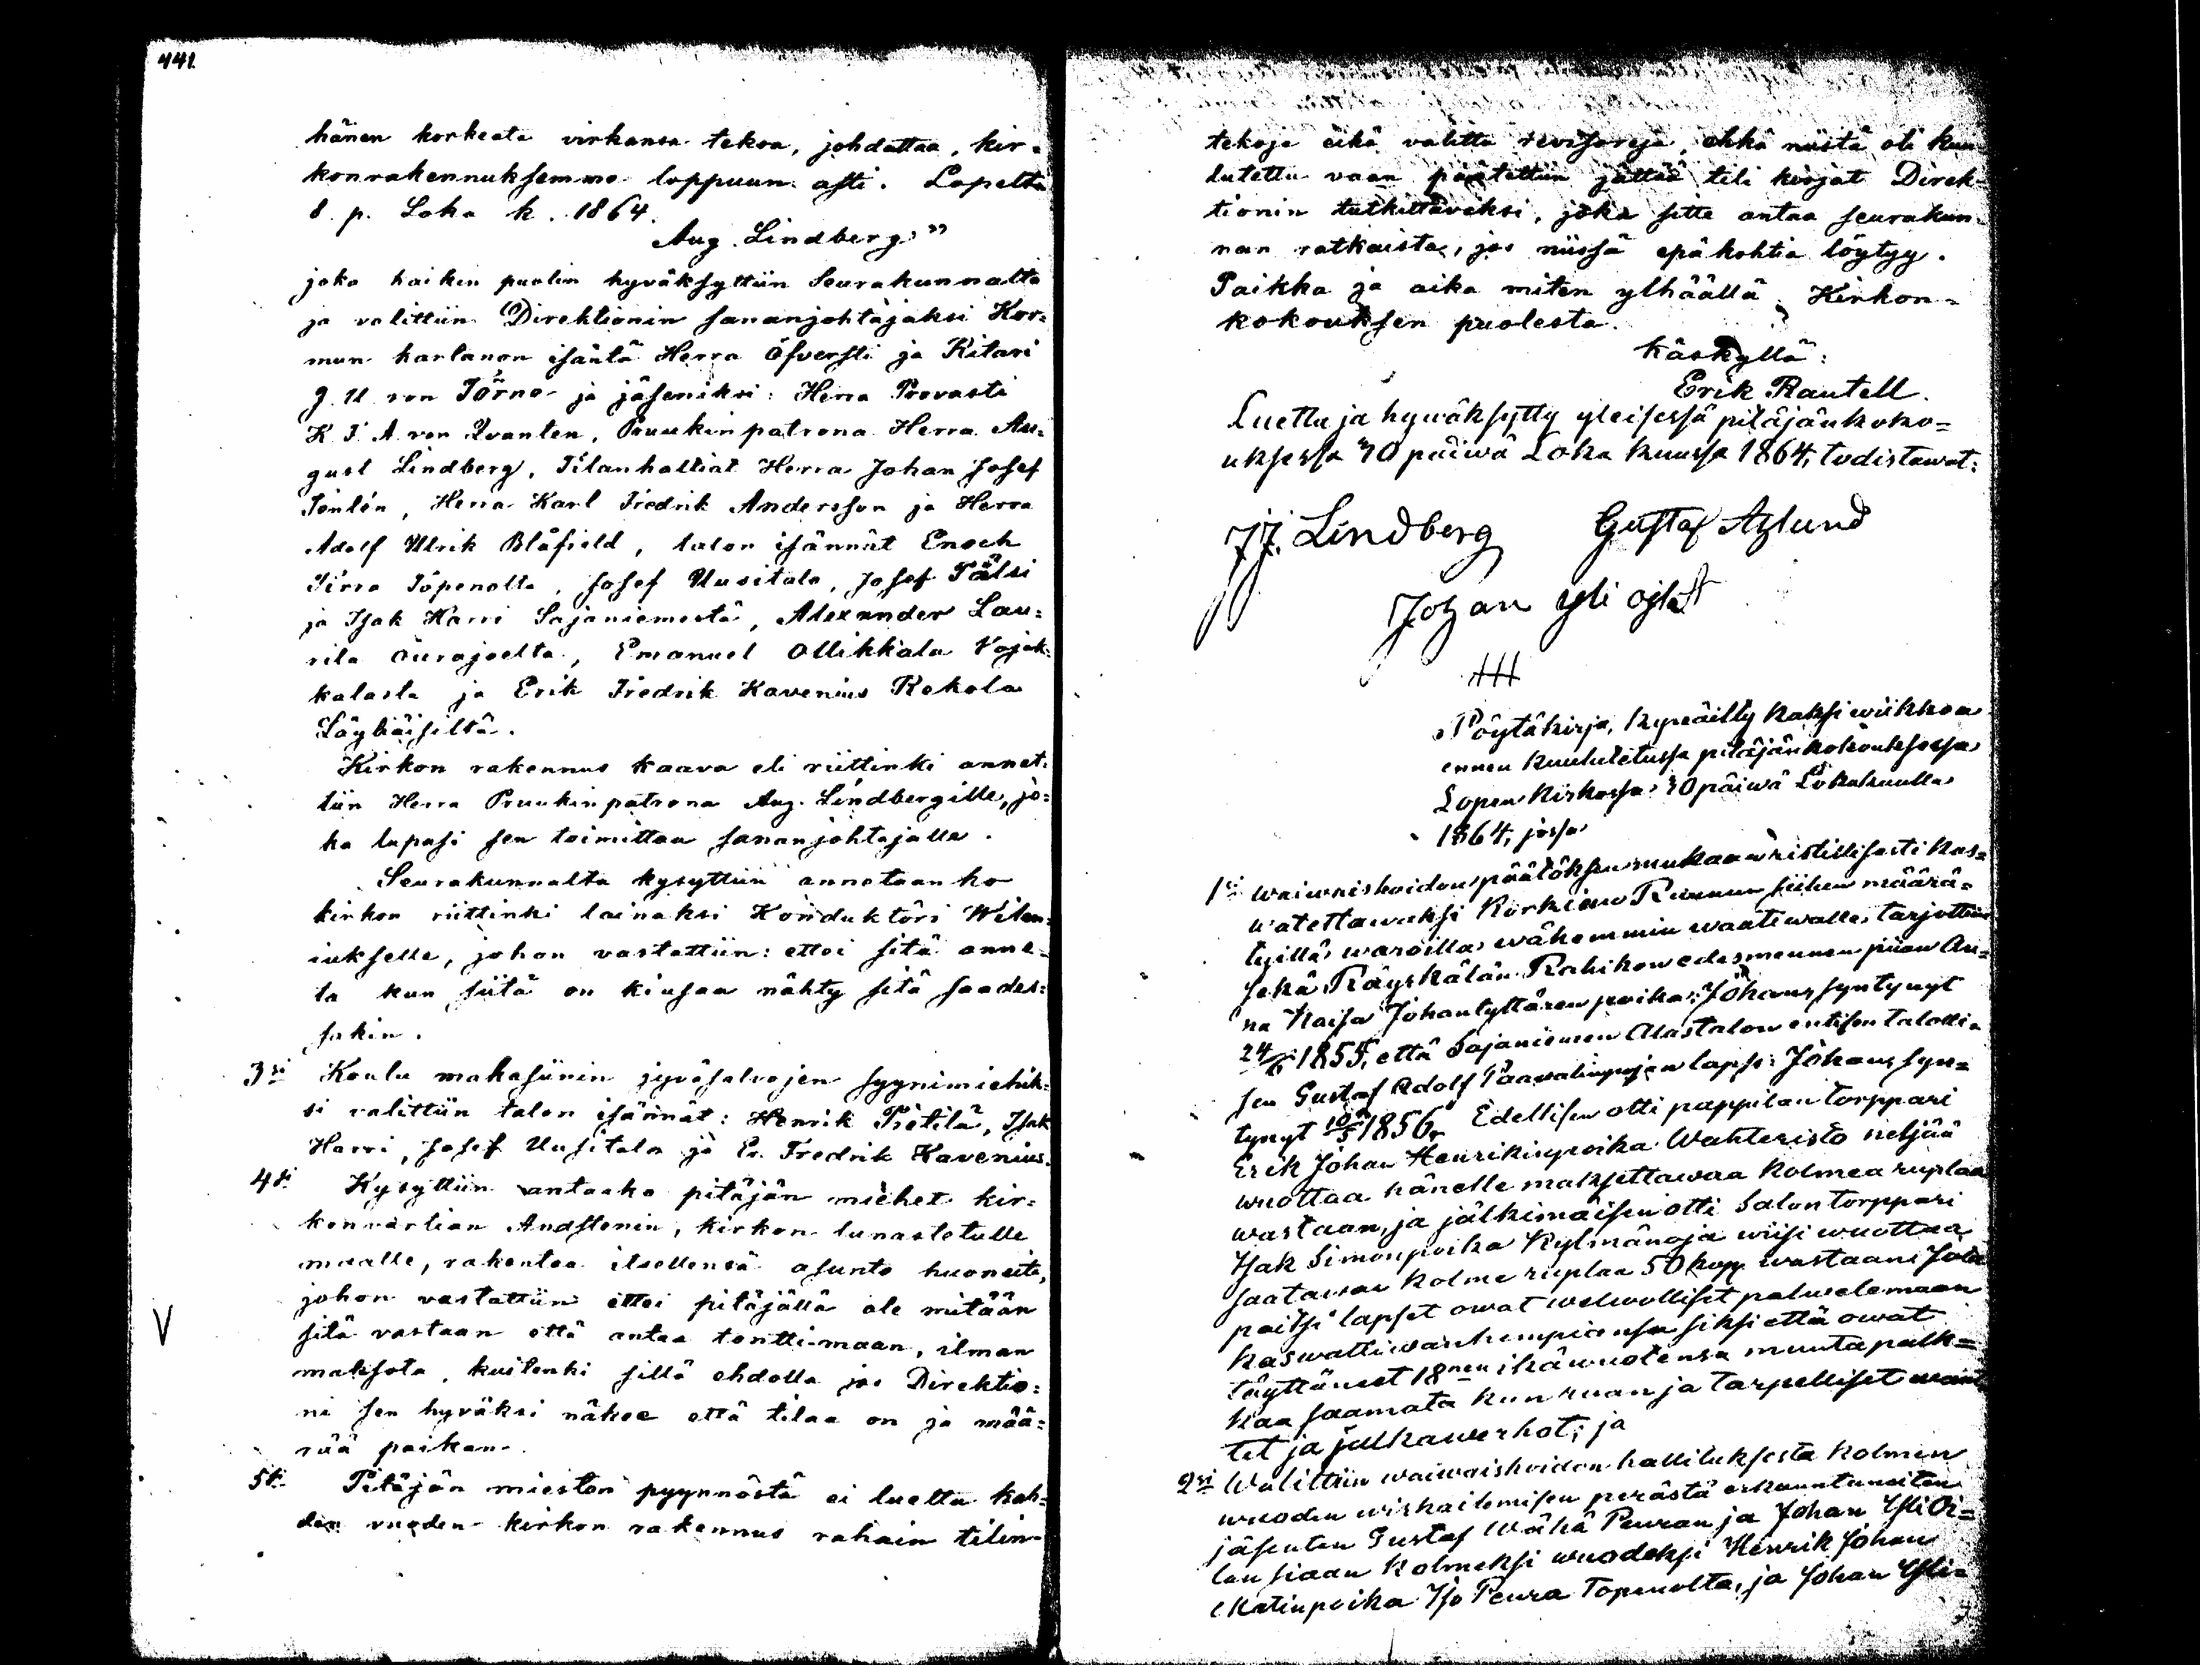 441.
hänen korkeata virkansa tekoa, johdattaa, kir=
konrakennuksemme loppuun asti. Lopelta
8. p. Loka k. 1864.
Aug. Lindberg"
joka kaikin puolin hyväksyttiin Seurakunnalta
ja valittiin Direktionin sananjohtajaksi Kor=
mun kartanon isäntä Herra Öfversti ja Ritari
g. U. von Törne ja jäseniksi: Herra Provasti
K. F. A. von Qvanten, Pruukinpatrona Herra Au=
gust Lindberg, Tilanhaltiat Herra Johan Josef
Herra Karl Fredrik Andersson ja Herra
Adolf Ulrik Blåfield, talon isännät Enoch
Pirra Topenolta, Josef Uusitalo, Josef Pälsi
ja Isak Harri Sajaniemestä, Alexander Lau=
rila Ourajoelta, Emanuel Ollikkala Vojak=
kalasta ja Erik Fredrik Kavenius Kokola
Läyliäisiltä.
Kirkon rakennus kaava eli riittinki annet=
tiin Herra Pruukinpatrona Aug. Lindbergille, jo=
ka lupasi sen toimittaa sananjohtajalle.
Seurakunnalta kysyttiin annetaanko
kirkon riittinki lainaksi Konduktöri Wilen=
iukselle, johon vastattiin: ettei sitä anne=
ta kun siitä on kiusaa nähty sitä saades=
sakin.
3si Koulu makasiinin jyväsalvojen syynimiehik=
si valittiin talon isännät: Henrik Pietilä, Isak
Harri, Josef Uusitalo ja Er. Fredrik Kavenius.
4si Kysyttiin antaako pitäjän miehet kir=
konvartian Andstenin, kirkon lunastetulle
maalle, rakentaa itsellensä asunto huoneita,
johon vastattiin ettei pitäjällä ole mitään
sitä vastaan että antaa tonttimaan, ilman
maksota, kuitenki sillä ehdolla jos Direktio=
ni sen hyväksi näkee että tilaa on ja mää=
rää paikan.
5si Pitäjän miesten pyynnöstä ei luettu kah=
den vuoden kirkon rakennus rahain tilin=
tekoja eikä valittu revisoreja, ehkä niistä oli kuu
lutettu vaan päätettiin jättää tili kirjat Direk=
tionin tutkittavaksi, joka sitte antaa seurakun=
nan ratkaista, jos niissä epäkohtia löytyy.
Paikka ja aika miten ylhäällä. Kirkon=
kokouksen puolesta.
Käskyllä:
Erik Rautell.
Luettu ja hywäksytty yleisessä pitäjänkoko=
uksessa 30 päiwä Loka kuussa 1864, todistawat:
JJ. Lindberg Gustaf Aslund
Johan yli ojla
Pöytäkirja, kypsäilty kaksi wiikkoa
ennen kuulutetussa pitäjänkokouksessa
Lopen Kirkossa 30 päiwä Lokakuulla
1864, jossa
1si waiwaishoidon päätöksen mukaan ristillisesti kas=
watettawaksi Korkiein Ruunun siihen määrä=
tyillä waroilla wähemmin waatiwalle, tarjottiin
sekä Räyskälän Rahikon edesmennen piian An=
na Kaisa Johantyttären poika: Johan, syntynyt
24/6 1855, että Sajaniemen Alastalon entisen talolli=
sen Gustaf Adolf Paawalinpojan lapsi: Johan, syn=
tynyt 10/5 1856. Edellisen otti pappilan torppari
Erik Johan Henrikinpoika Wahteristo neljää
wuottaa hänelle maksettawaa kolmea ruplaa
wastaan, ja jälkimäisen otti Salon torppari
Isak Simonpoika Kylmänoja wiisi wuottaa
saatawaa kolme ruplaa 50 kopp. wastaan. Jota
paitsi lapset owat welwolliset palwelemaan
kaswattiwanhempiansa siksi että owat
täyttäneet 18nen ikäwuotensa muuta palk=
kaa saamata kun ruan ja tarpelliset waat
tet ja jalkawerhot; ja
2si Walittiin waiwaishoidon hallituksesta kolmen
wuoden wirkailemisen perästä erkauntuneiten
jäsenten Gustaf Wähä Peuran ja Johan Yli Oi=
lan siaan kolmeksi wuodeksi Henrik Johan
Matinpoika Iso Peura Topenolta, ja Johan Yli=